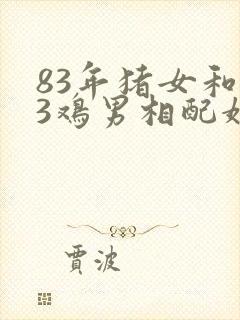 83年猪女和
3鸡男相配
贾波